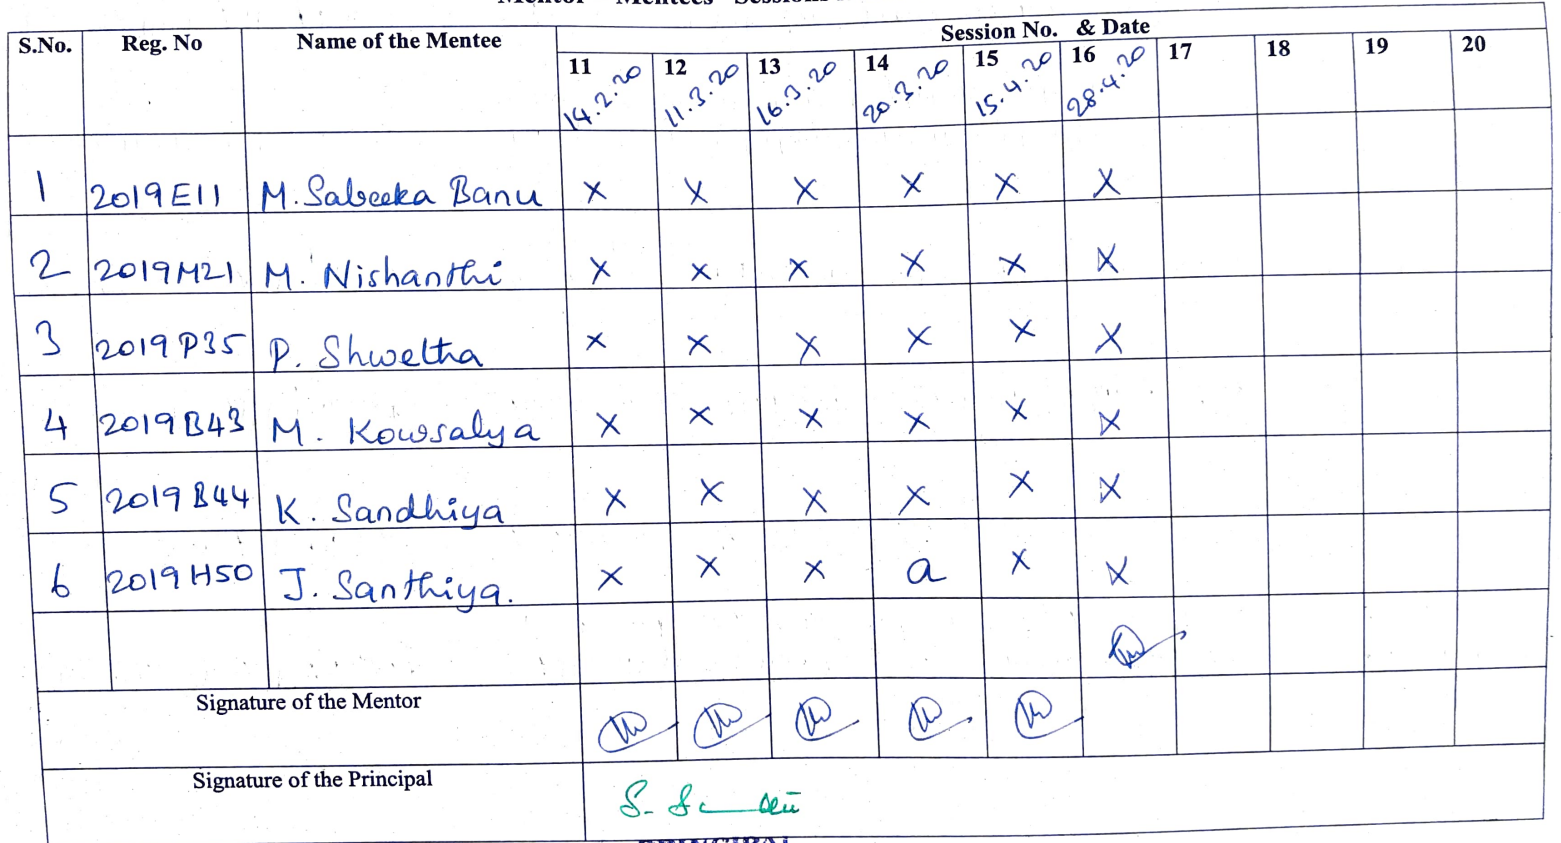 Mentor – Mentees Session
S.No. Reg. No Name of the Mentee Session No. & Date
11 12 13 14 15 16 17 18 19 20
14.2.20 11.3.20 16.3.20 20.3.20 15.4.20 28.4.20
1 2019E11 M. Sabeeka Banu x x x x x x
2 2019M21 M. Nishanthi x x x x x x
3 2019P35 P. Shwetha x x x x x x
4 2019B43 M. Kowsalya x x x x x x
5 2019B44 K. Sandhiya x x x x x x
6 2019H50 J. Santhiya. x x x a x x
Signature of the Mentor
Signature of the Principal
PRINCIPAL